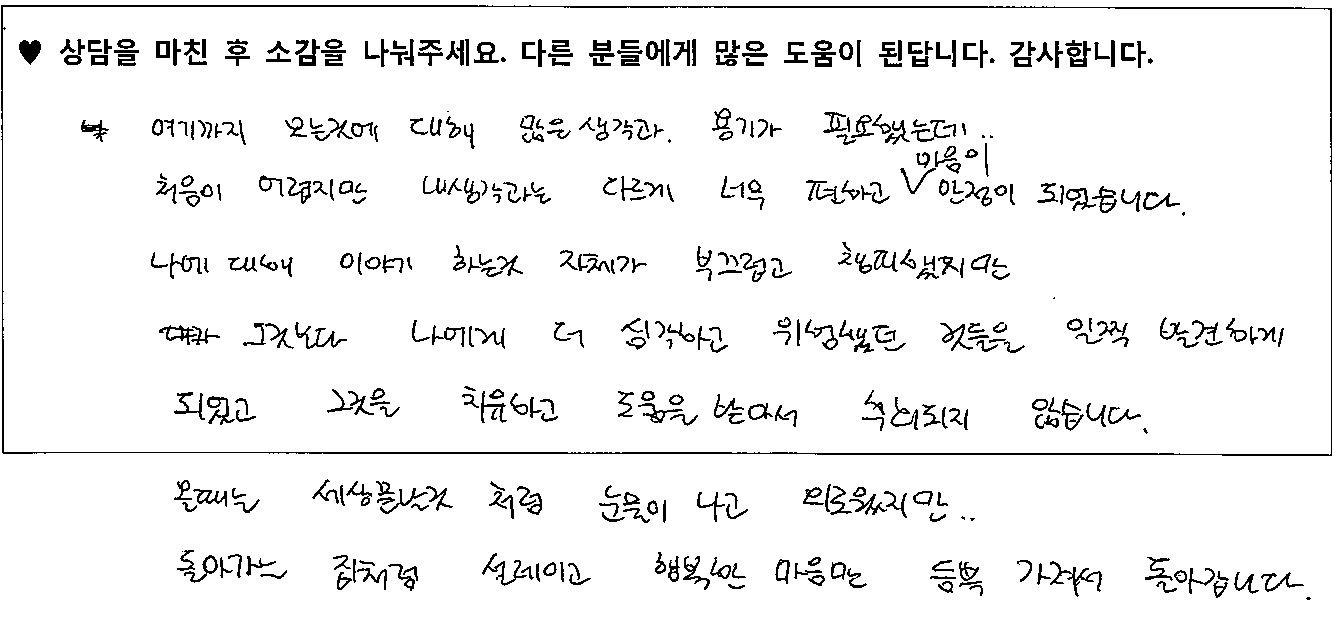 ♥ 상담을 마친 후 소감을 나눠주세요. 다른 분들에게 많은 도움이 된답니다. 감사합니다.
여기까지 오는것에 대해 많은 생각과. 용기가 필요했는데..
마음이
처음이 어렵지만 내생각과는 다르게 너무 편하고 안정이 되었습니다.
나에 대해 이야기 하는것 자체가 부끄럽고 창피했지만
그것보다 나에게 더 심각하고 위험했던 것들을 일찍 발견하게
되었고 그것을 치유하고 도움을 받아서 후회되지 않습니다.
올때는 세상끝난것 처럼 눈물이 나고 외로웠지만..
돌아가는 집처럼 설레이고 행복한 마음만 듬뿍 가져서 돌아갑니다.